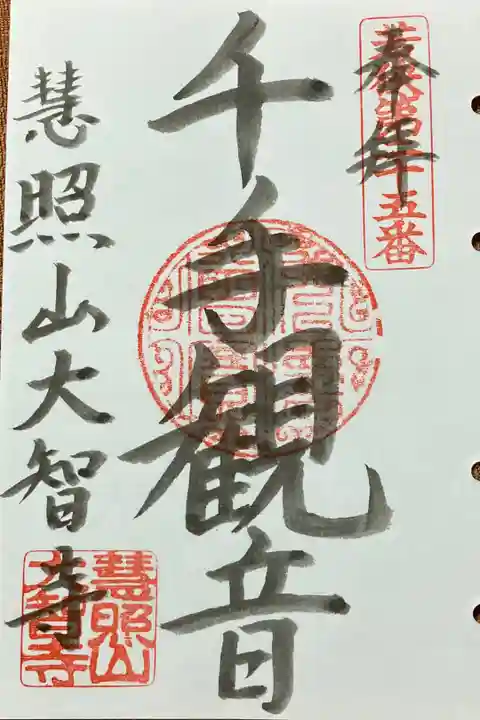 奉拝
五番
千手観音
慧照山大智寺
慧照山
大智寺